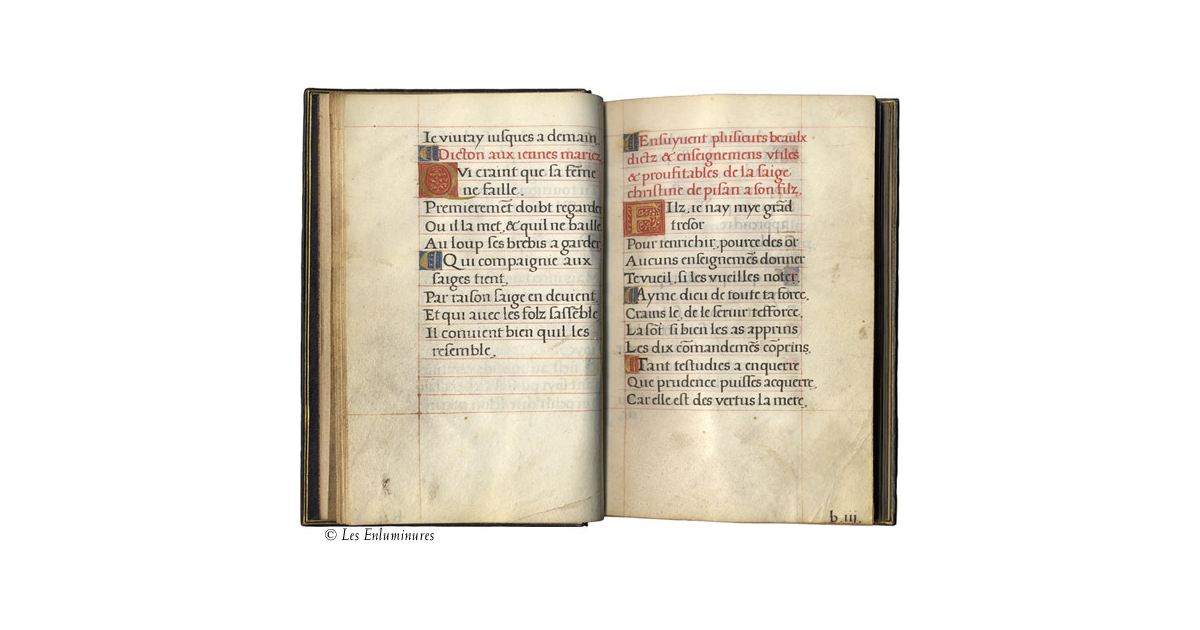 Ie viuray iusques a demain.
Dicton aux ieunes mariez
QVi craint que sa fēme
ne faille.
Premieremēt doibt regarder
Ou il la met, & quil ne baille
Au loup ses brebis a garder
Qui compaignie aux
saiges tient,
Par raison saige en deuient,
Et qui auec les folz sassēble
Il conuient bien quil les
resemble.
Ensuyuent plusieurs beaulx
dictz & enseignemens vtiles
& proufitables de la saige
christine de pisan a son filz.
FIlz, ie nay mye grād
tresor
Pour tenrichir, pource des or
Aucuns enseignemēs donner
Te vueil, si les vueilles noter
Ayme dieu de toute ta force,
Crains le, de le seruir tefforce,
La soř si bien les as apprins
Les dix cōmandemēs cōprins,
Tant testudies a enquerre
Que prudence puisses acquerre,
Car elle est des vertus la mere,
b.iij.
© Les Enluminures